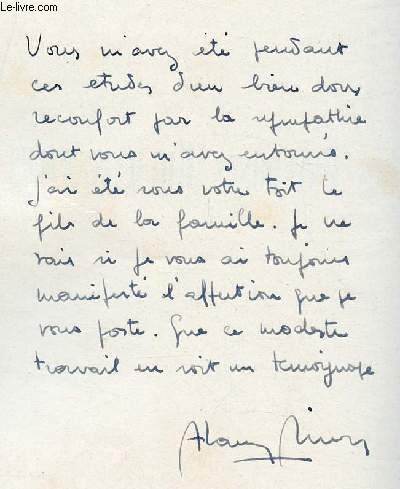 Le-livre.com
Vous m'avez été pendant
ces etudes d'un bien doux
reconfort par la sympathie
dont vous m'avez entourés.
J'ai été sous votre toit le
fils de la famille. Je ne
sais si je vous ai toujours
manifesté l'affection que je
vous porte. Que ce modeste
travail en soit un temoignage
Alain